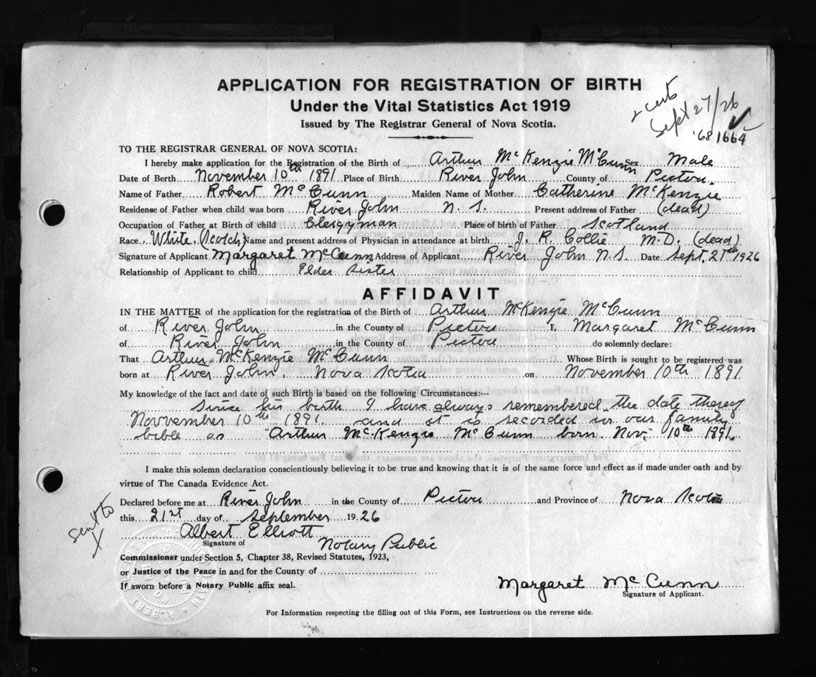 APPLICATION FOR REGISTRATION OF BIRTH
Under the Vital Statistics Act 1919
Issued by The Registrar General of Nova Scotia.
Sept 27/26
1664
TO THE REGISTRAR GENERAL OF NOVA SCOTIA:
I hereby make application for the Registration of the Birth of Arthur McKenzie McCunn Sex Male
Date of Birth November 10th 1891 Place of Birth River John County of Pictou
Name of Father Robert McCunn Maiden Name of Mother Catherine McKenzie
Residense of Father when child was born River John N. S. Present address of Father (dead)
Occupation of Father at Birth of child Clergyman Place of birth of Father Scotland
Race White Scotch Name and present address of Physician in attendance at birth J. R. Collie M.D. (dead)
Signature of Applicant Margaret McCunn Address of Applicant River John N.S. Date Sept. 21st 1926
Relationship of Applicant to child Elder Sister
AFFIDAVIT
IN THE MATTER of the application for the registration of the Birth of Arthur McKenzie McCunn
of River John in the County of Pictou I, Margaret McCunn
of River John in the County of Pictou do solemnly declare:
That Arthur McKenzie McCunn Whose Birth is sought to be registered was
born at River John, Nova Scotia on November 10th 1891
My knowledge of the fact and date of such Birth is based on the following Circumstances:—
Since his birth I have always remembered the date thereof
November 10th 1891 and it is recorded in our family
bible as "Arthur McKenzie McCunn born Nov; 10th 1891.
I make this solemn declaration conscientiously believing it to be true and knowing that it is of the same force and effect as if made under oath and by
virtue of The Canada Evidence Act.
Declared before me at River John in the County of Pictou and Province of Nova Scotia
this 21st day of September 1926
Albert Elliott
Signature of Notary Public
Commissioner under Section 5, Chapter 38, Revised Statutes, 1923,
or Justice of the Peace in and for the County of
If sworn before a Notary Public affix seal.
Margaret McCunn
Signature of Applicant.
For Information respecting the filling out of this Form, see Instructions on the reverse side.